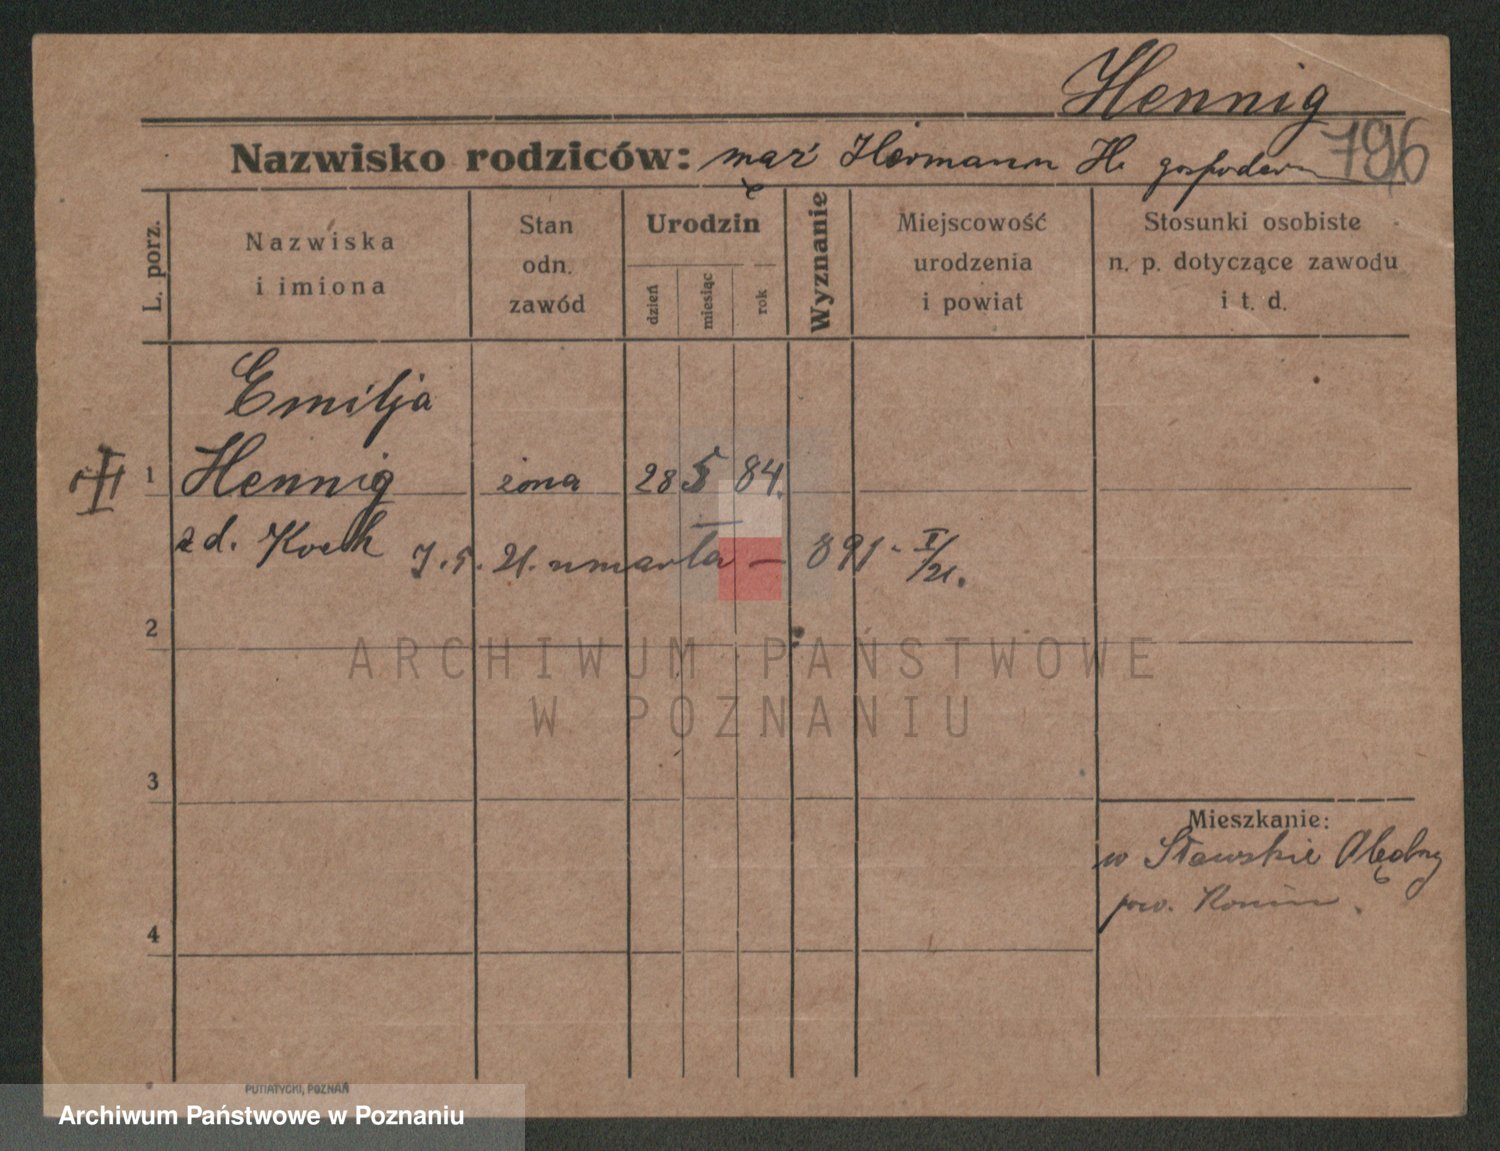 Hennig
796
Nazwisko rodziców: mąż Hermann H. gospodarz
L. porz.
Nazwiska
i imiona
Stan
odn.
zawód
Urodzin
dzień
miesiąc
rok
Wyznanie
Miejscowość
urodzenia
i powiat
Stosunki osobiste
n. p. dotyczące zawodu
i t. d.
Emilja
1 Hennig żona 28 5 84.
zd. Koch 7.5.21. umarła — 891 - V/21.
2
3
Mieszkanie:
w Sławskie Olędry
pow. Konin.
4
PUTIATYCKI, POZNAŃ
ARCHIWUM PAŃSTWOWE
W POZNANIU
Archiwum Państwowe w Poznaniu